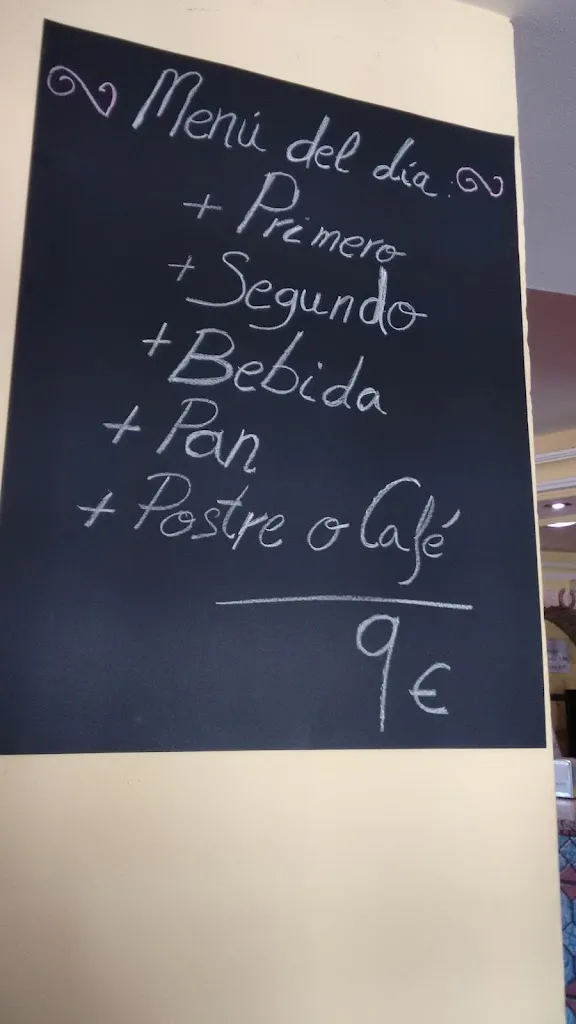 Menú del día:
+ Primero
+ Segundo
+ Bebida
+ Pan
+ Postre o Café
9 €